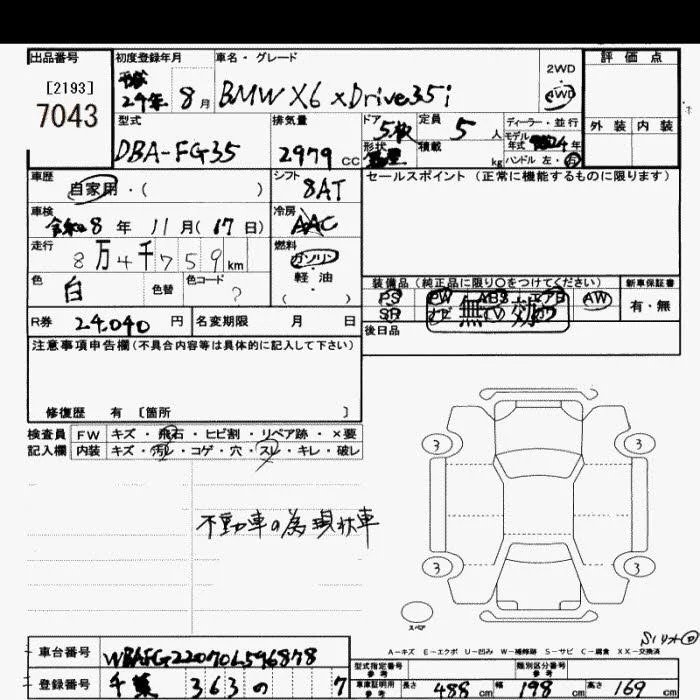 出品番号 初度登録年月 車名・グレード 評価点
[2193] 2WD
7043 平成24年 8月 BMW X6 xDrive35i 4WD
型式 排気量 ドア 定員 ディーラー・並行 外装 内装
5枚 5人 モデル年式 年
DBA-FG35 2979 CC 形状 積載 kg ハンドル 左・右
車歴 シフト セールスポイント (正常に機能するものに限ります)
自家用・( ) 8AT
車検 冷房
令和8年 11月(17日) AAC
走行 燃料
8万4千759km ガソリン
色 色替 色コード 軽・油
白 ? ( )
装備品(純正品に限り○をつけてください) 新車保証書
PS PW ABS エアB AW 有・無
SR ナビ TV
無効
R券 24,040円 名変期限 月 日 後日品
注意事項申告欄(不具合内容等は具体的に記入して下さい)
修復歴 有 [箇所 ]
検査員 FW キズ・飛石・ヒビ割・リペア跡・×要
記入欄 内装 キズ・汚レ・コゲ・穴・スレ・キレ・破レ
3 3
不動車の為現状車
3 3
スペア
A-キズ E-エクボ U-凹み W-補修跡 S-サビ C-腐食 XX-交換済
車台番号 WBAFG22070L596878
型式指定番号 参考 類別区分番号 参考
登録番号 千葉 363 の 7
車庫証明用 参考 長さ 488 cm 幅 198 cm 高さ 169 cm